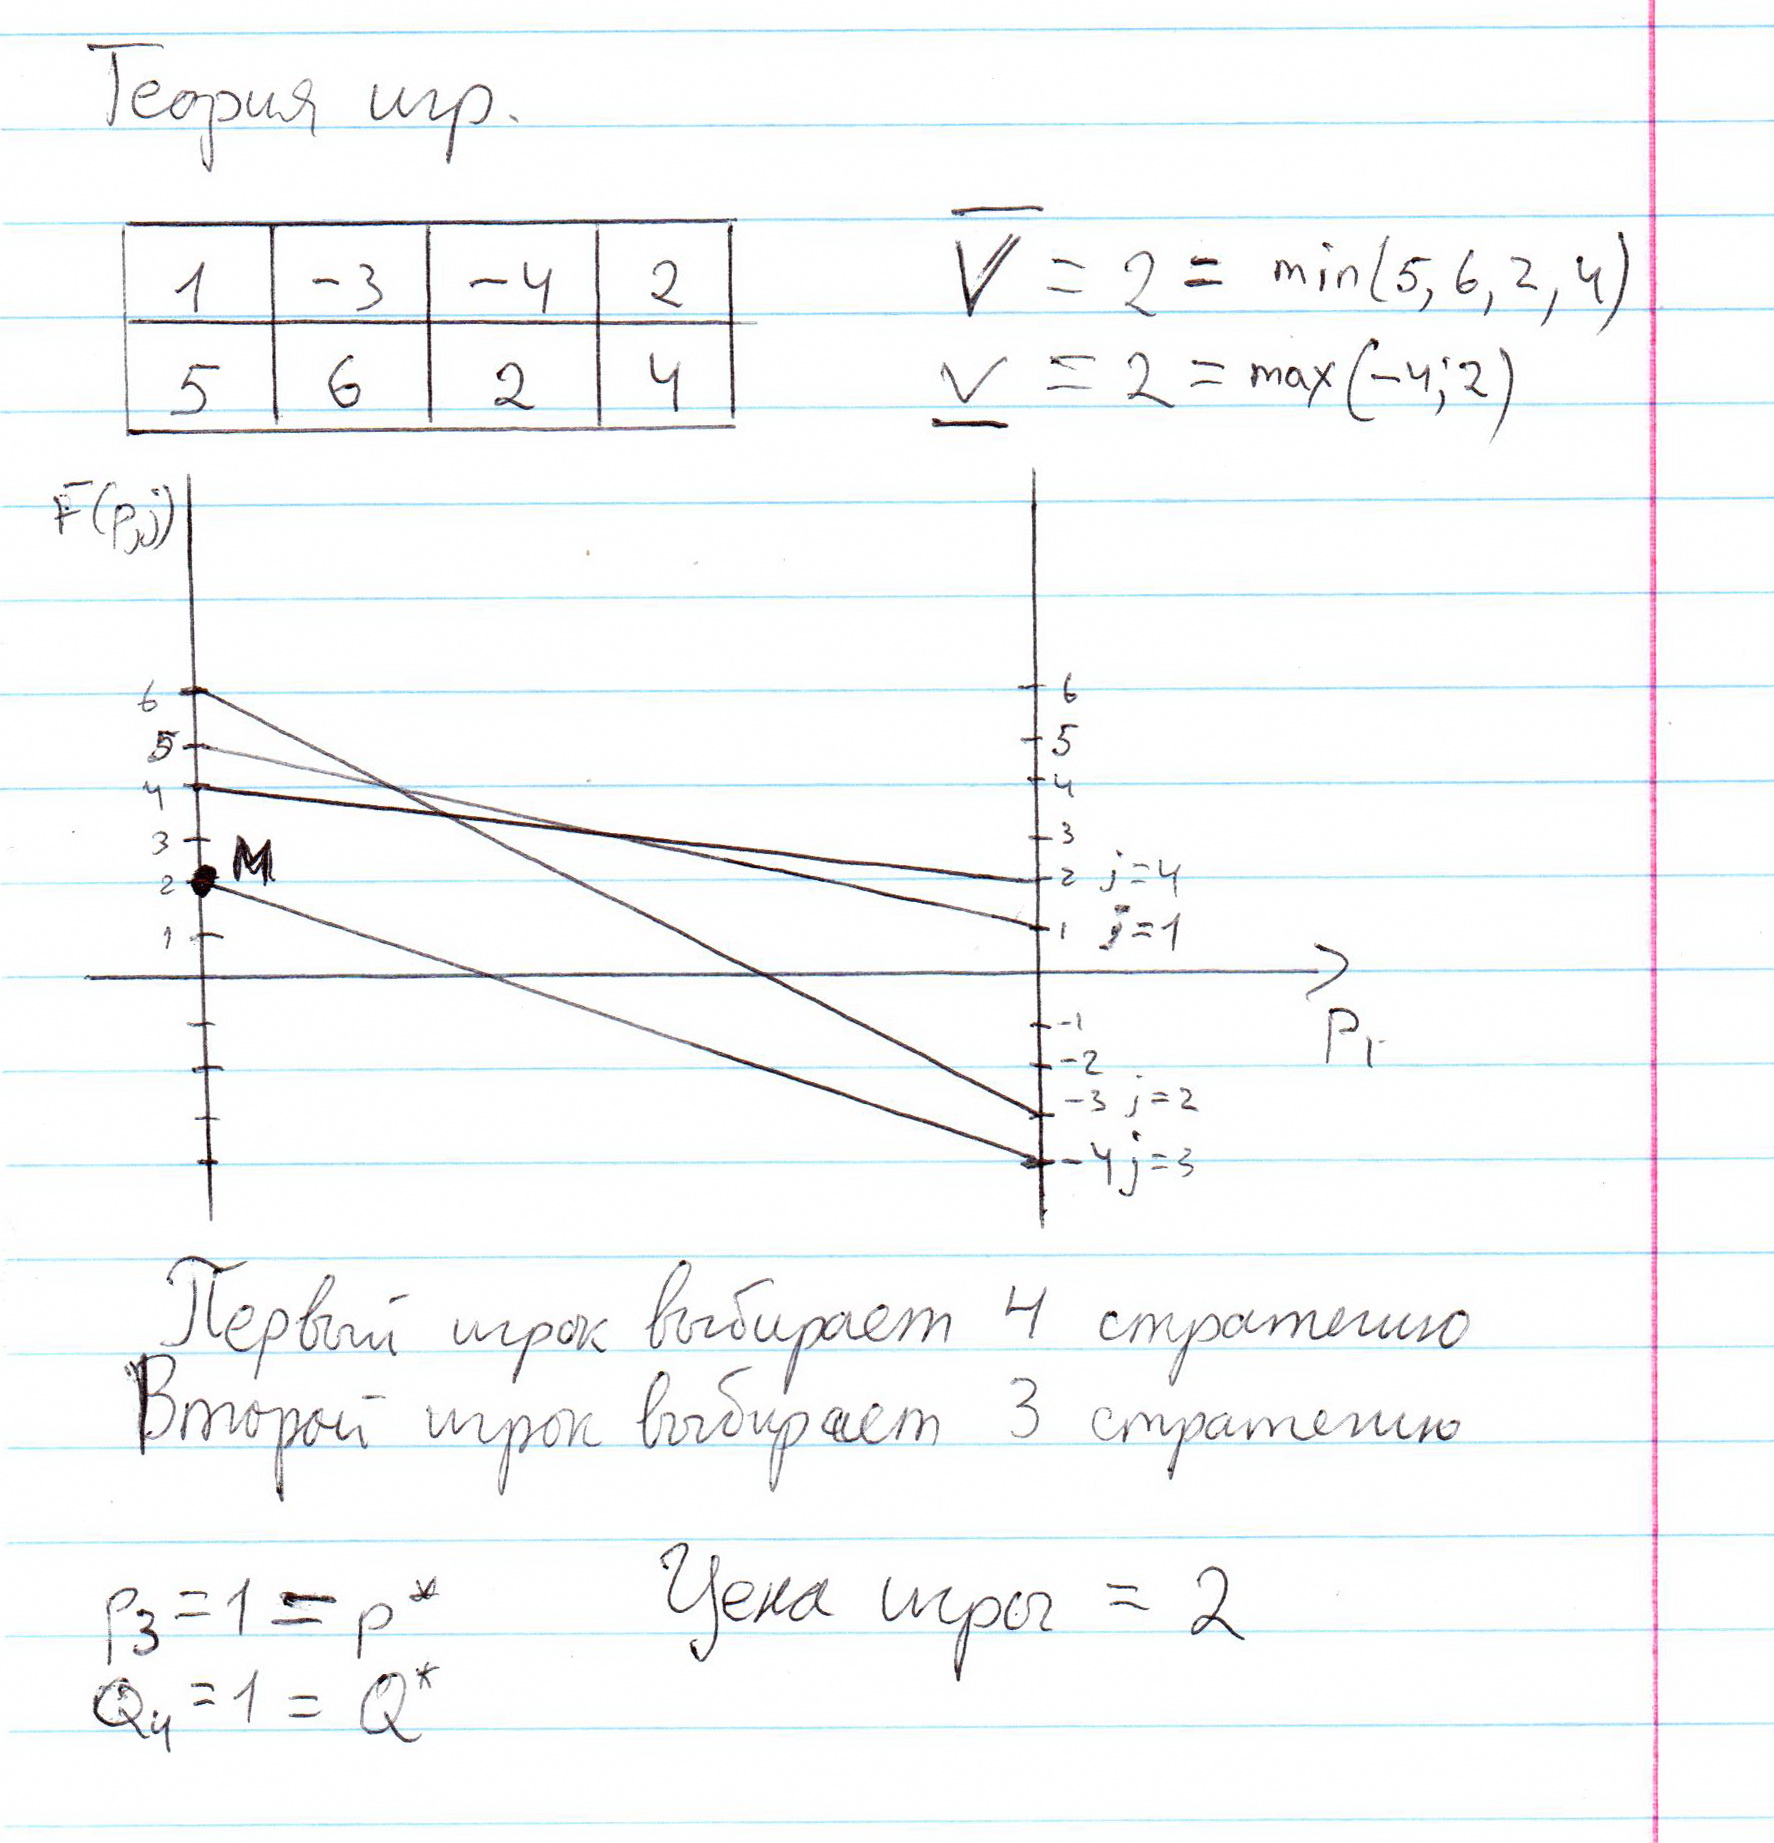 Теория игр.
1 -3 -4 2
5 6 2 4
V = 2 = min(5, 6, 2, 4)
V = 2 = max(-4; 2)
F(p,j)
6
5
4
3
2
1
M
6
5
4
3
2 j=4
1 j=1
-1
-2
-3 j=2
-4 j=3
P1
Первый игрок выбирает 4 стратегию
Второй игрок выбирает 3 стратегию
p3 = 1 = p*
Q4 = 1 = Q*
Цена игры = 2